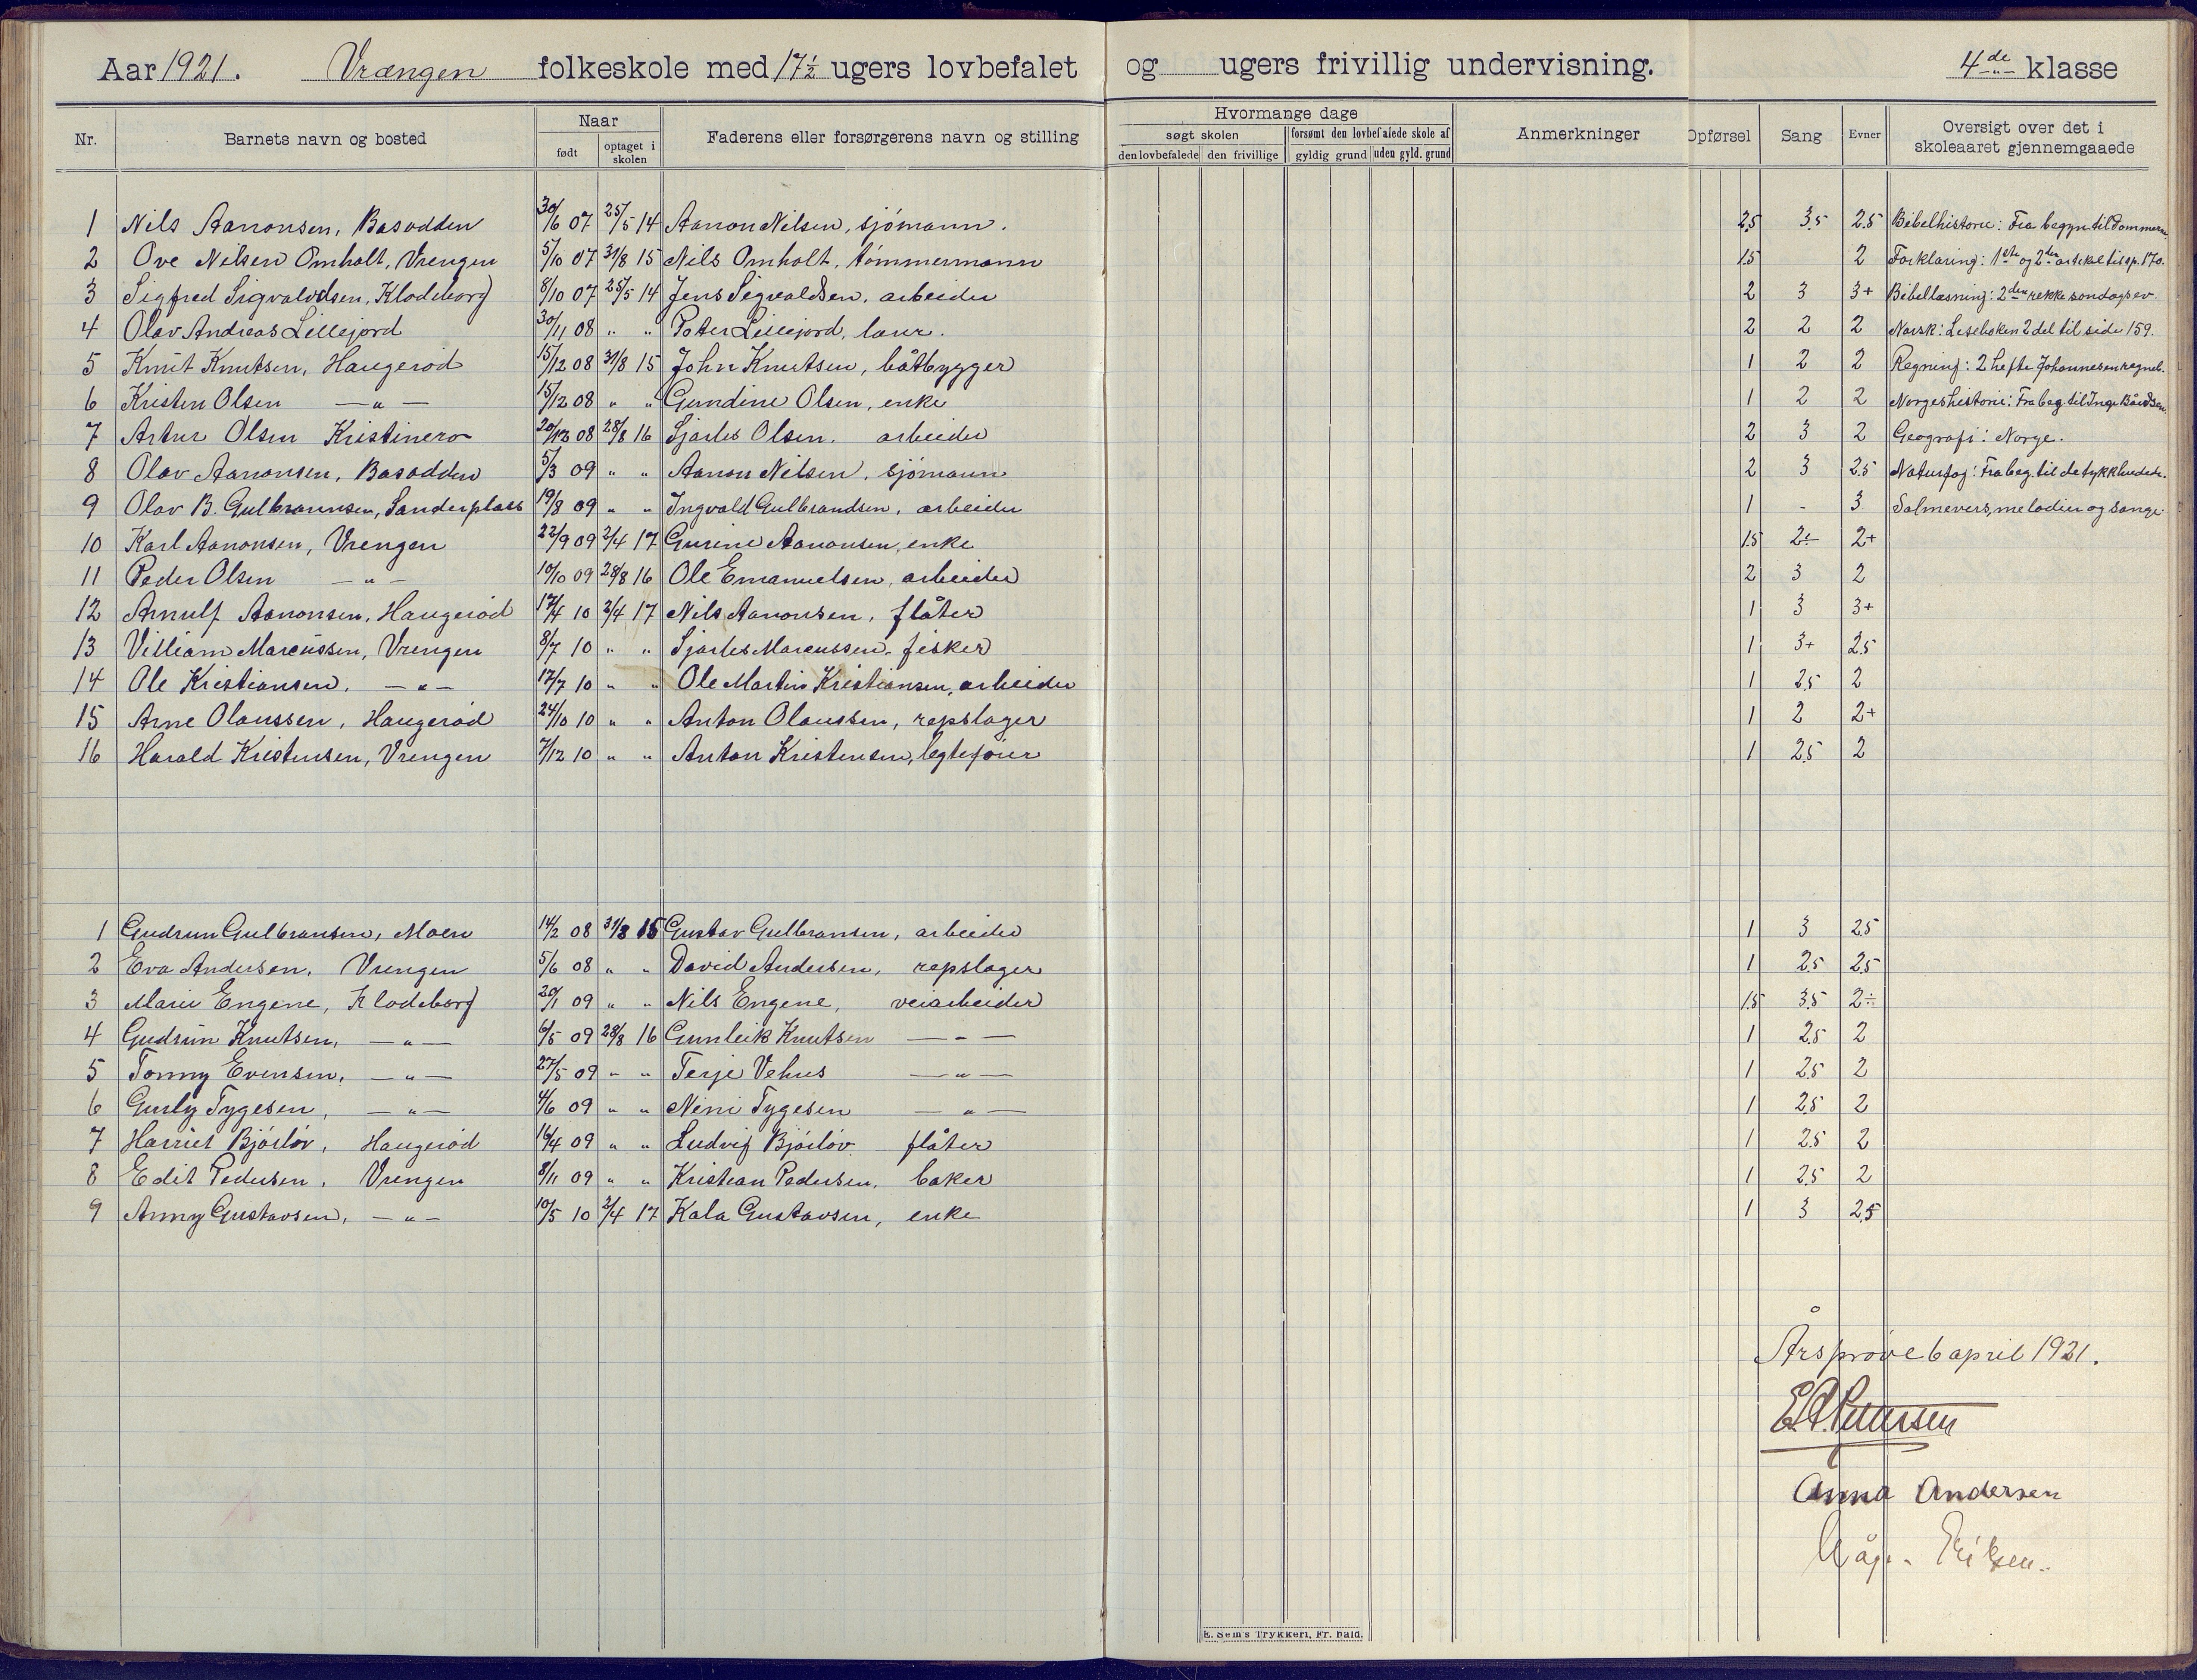 Aar 1921. Vrængen folkeskole med 17½ ugers lovbefalet og ugers frivillig undervisning. 4de klasse
Nr. Barnets navn og bosted Naar født optaget i skolen Faderens eller forsørgerens navn og stilling Hvormange dage søgt skolen den lovbefalede den frivillige forsømt den lovbefalede skole af gyldig grund uden gyld. grund Anmerkninger Opførsel Sang Evner Oversigt over det i skoleaaret gjennemgaaede
1 Nils Aanonsen, Basodden 30/6 07 25/5 14 Aanon Nilsen, sjömann. 2.5 3.5 2.5 Bibelhistorie: Fra begyn til Dommern.
2 Ove Nilsen Omholt, Vrengen 5/10 07 31/8 15 Nils Omholt, tömmermann 1.5 2 Forklaring: 1ste og 2den artikel til sp. 170.
3 Sigfred Sigvaldsen, Klodeborg 8/10 07 25/5 14 Jens Sigvaldsen, arbeider 2 3 3+ Bibellæsning: 2den rekke søndagsev.
4 Olav Andreas Lillejord 30/11 08 " " Peter Lillejord, lærer. 2 2 2 Norsk: Leseboken 2 del til side 159.
5 Knut Knutsen, Haugeröd 15/12 08 31/8 15 John Knutsen, båtbygger 1 2 2 Regning: 2 hefte Johannesen regneb.
6 Kristen Olsen —"— 15/12 08 " " Gundine Olsen, enke 1 2 2 Norgeshistorie: Fra beg til Inge Bårdsen.
7 Artur Olsen Kristinero 20/12 08 28/8 16 Sjarles Olsen. arbeider 2 3 2 Geografi: Norge.
8 Olav Aanonsen, Basodden 5/3 09 " " Aanon Nilsen, sjömann 2 3 2.5 Naturfag: Fra beg. til de tykkhudede.
9 Olav B. Gulbrannsen, Sanderplass 19/8 09 " " Ingvald Gulbrandsen, arbeider 1 - 3 Salmevers, melodier og sange.
10 Karl Aanonsen, Vrengen 22/9 09 2/4 17 Gurine Aanonsen, enke 1.5 2÷ 2+
11 Peder Olsen —"— 10/10 09 28/8 16 Ole Emanuelsen, arbeider 2 3 2
12 Arnulf Aanonsen, Haugeröd 17/4 10 2/4 17 Nils Aanonsen, flåter 1 3 3+
13 Villiam Marcussen, Vrengen 8/7 10 " " Sjarles Marcussen, fisker 1 3+ 2.5
14 Ole Kristiansen, —"— 17/7 10 " " Ole Martin Kristiansen, arbeider 1 2.5 2
15 Arne Olaussen, Haugeröd 24/10 10 " " Anton Olaussen, repslager 1 2 2+
16 Harald Kristensen, Vrengen 7/12 10 " " Anton Kristensen, legtefører 1 2.5 2
1 Gudrun Gulbransen, Moen 14/2 08 31/8 15 Gustav Gulbransen, arbeider 1 3 2.5
2 Eva Andersen, Vrengen 5/6 08 " " David Andersen, repslager 1 2.5 2.5
3 Marie Engene, Klodeborg 20/1 09 " " Nils Engene, veiarbeider 1.5 3.5 2÷
4 Gudrun Knutsen, —"— 6/5 09 28/8 16 Gunleik Knutsen —"— 1 2.5 2
5 Tonny Evensen, —"— 27/5 09 " " Terje Vehus —"— 1 2.5 2
6 Gurly Tygesen, —"— 4/6 09 " " Nini Tygesen —"— 1 2.5 2
7 Harriet Bjórlöv, Haugeröd 16/4 09 " " Ludvig Bjórlöv flåter 1 2.5 2
8 Edit Pedersen, Vrengen 8/11 09 " " Kristian Pedersen, baker 1 2.5 2
9 Anny Gustavsen, —"— 10/5 10 2/4 17 Kala Gustavsen, enke 1 3 2.5
Årsprøve 6 april 1921.
Anna Andersen
E. Sem's Trykkeri, Fr. hald.